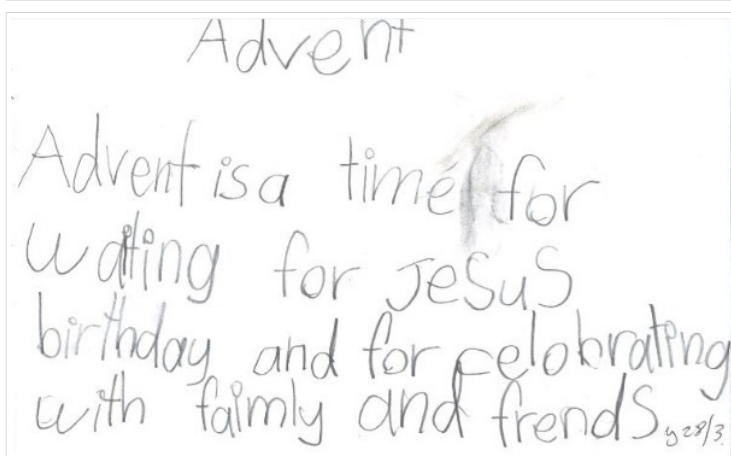 Advent
Advent is a time for
waiting for JeSuS
birthday and for celobrating
with faimly and frendS. y 28/3